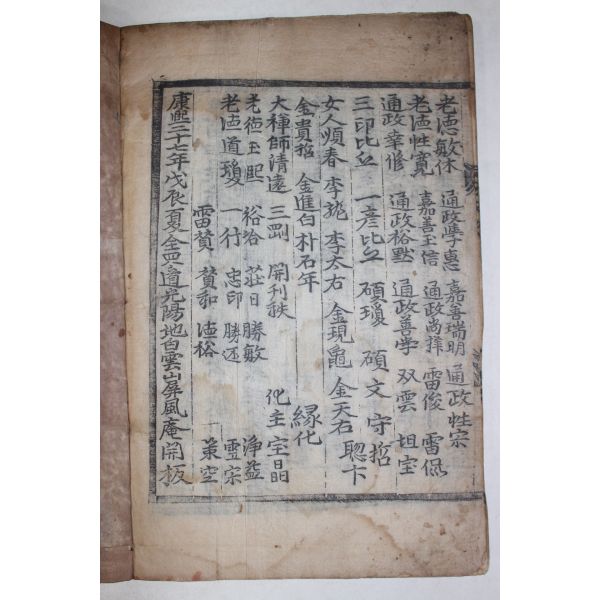 老德敏休 通政學惠 嘉善瑞明 通政性宗
老德性寬 嘉善玉信 通政尚祥 雷俊 雷侃
通政幸修 通政裕默 通政善學 双雲 坦宝
三印比丘 一彦比丘 碩瓊 碩文 守哲
女人順春 李 李太右 金現龜 金天右 聡卞
金貴哲 金進白 朴石年 緣化
大禅師清遠 三剛 開刊秩 化主 宝晶
老德玉熙 裕哈 莊日 勝敏 淨益
老德道瓊 一行 忠印 勝还 雪宗
雷賛 賛和 德裕 策空
康熙二十七年戊辰夏全罗道光陽地白雲山屏風庵開板